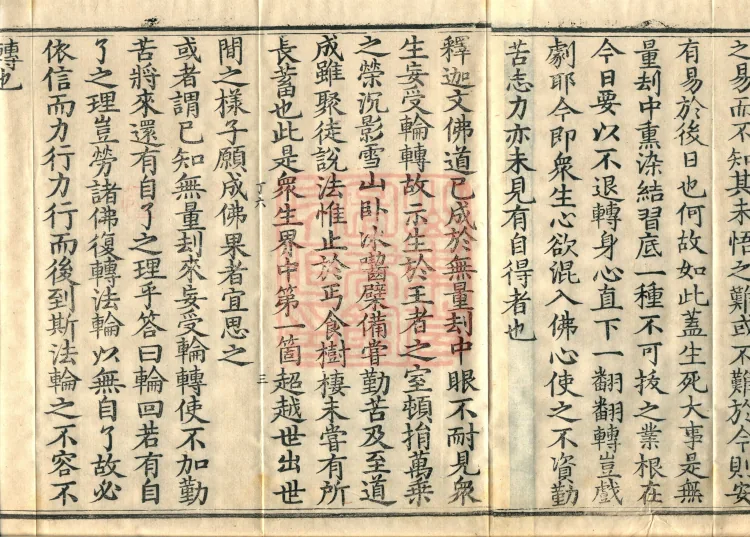 之易而不知其未悟之難或不難於今則安
有易於後日也何故如此蓋生死大事是無
量刦中熏染結習底一種不可拔之業根在
今日要以不退轉身心直下一翻翻轉豈戲
劇耶今即衆生心欲混入佛心使之不資勤
苦志力亦未見有自得者也
釋迦文佛道已成於無量刦中眼不耐見衆
生妄受輪轉故示生於王者之室頓捐萬乗
之榮沉影雪山卧冰嚙檗備甞勤苦及至道
成雖聚徒說法惟止於丐食樹棲未甞有所
長蓄也此是衆生界中第一箇超越世出世
丁六
三
間之樣子願成佛果者宜思之
或者謂已知無量刦來妄受輪轉使不加勤
苦將來還有自了之理乎答曰輪回若有自
了之理豈勞諸佛復轉法輪以無自了故必
依信而力行力行而後到斯法輪之不容不
轉也